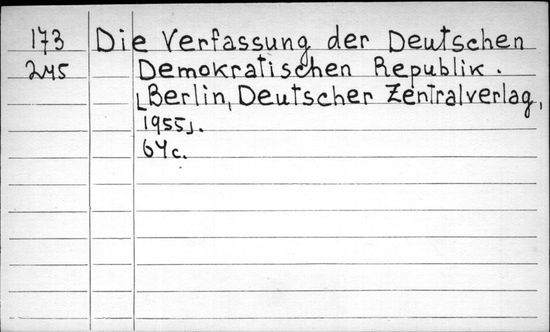 173 Die Verfassung der Deutschen
245 Demokratischen Republik.
[Berlin, Deutscher Zentralverlag,
1955].
64 c.